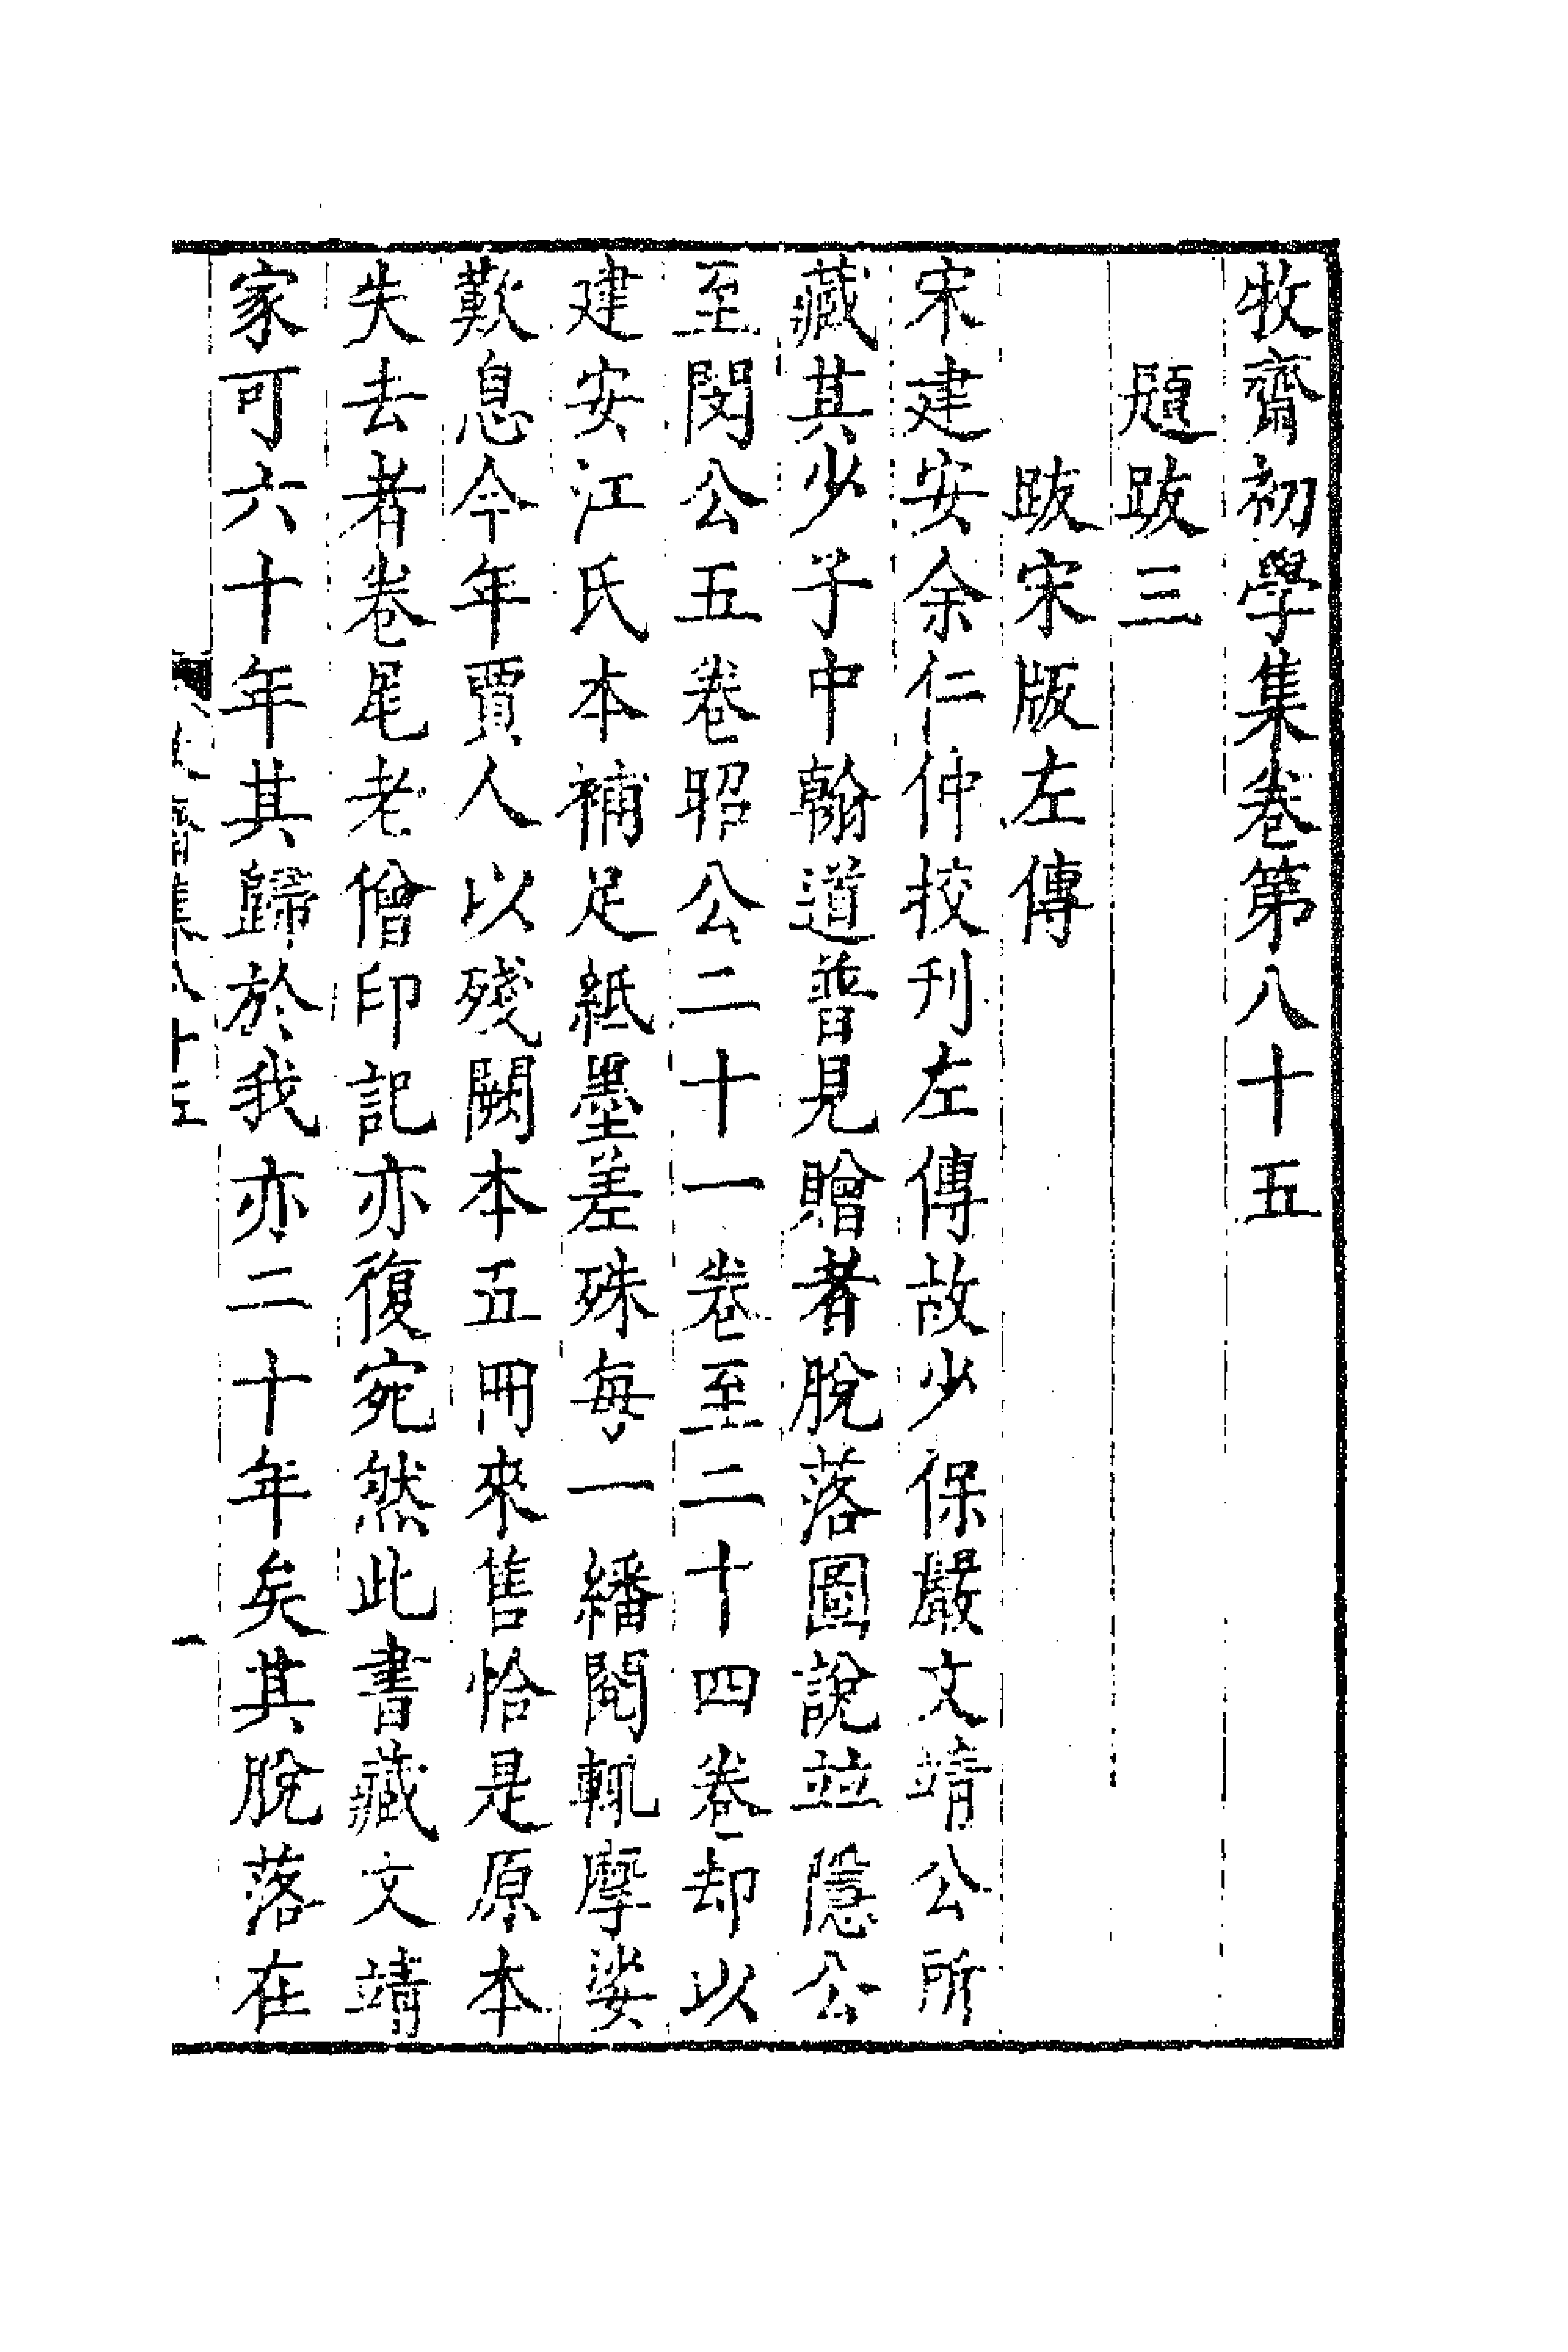 牧齋初學集卷第八十五
題跋三
跋宋版左傳
宋建安余仁仲挍刋左傳故少保嚴文靖公所
藏其少子中翰道普見贈者脫落圖說並隱公
至閔公五卷昭公二十一卷至二十四卷却以
建安江氏本補足紙墨差殊每一繙閱輒摩娑
歎息今年賈人以殘闕本五冊來售恰是原本
失去者卷尾老僧印記亦復宛然此書藏文靖
家可六十年其歸於我亦二十年矣其脫落在
牧齋集八十五
一